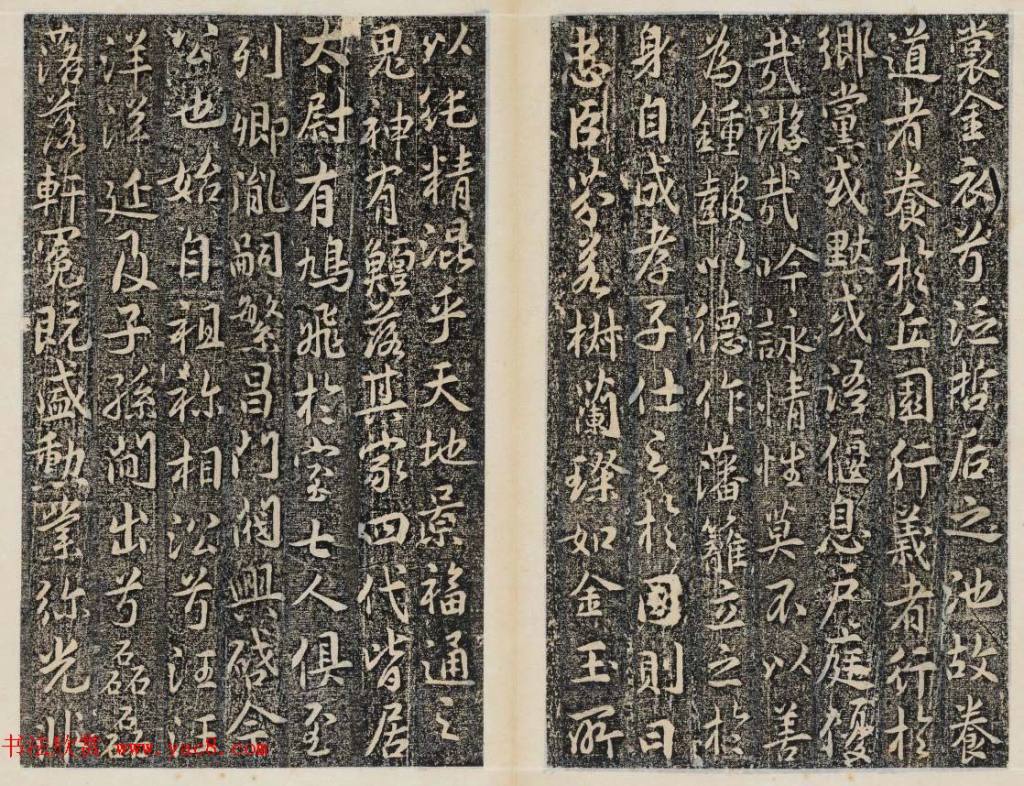 裳金衣兮泛哲后之池故養
道者養於丘園行義者行於
鄉黨或默或語偃息戶庭優
哉游哉吟詠情性莫不以善
為鍾鼓以德作藩籬立之於
身自成孝子仕之於國則曰
忠臣芬若椒蘭璨如金玉所
以純精混乎天地景福通之
鬼神有鱣落其家四代皆居
太尉有鳩飛於室七人俱至
列卿胤嗣繁昌門閥興啓令
公也始自祖祢相沿兮汪汪
洋洋延及子孫間出兮磊磊
落落軒冕既盛勳業弥光
书法欣赏 www.yac8.com